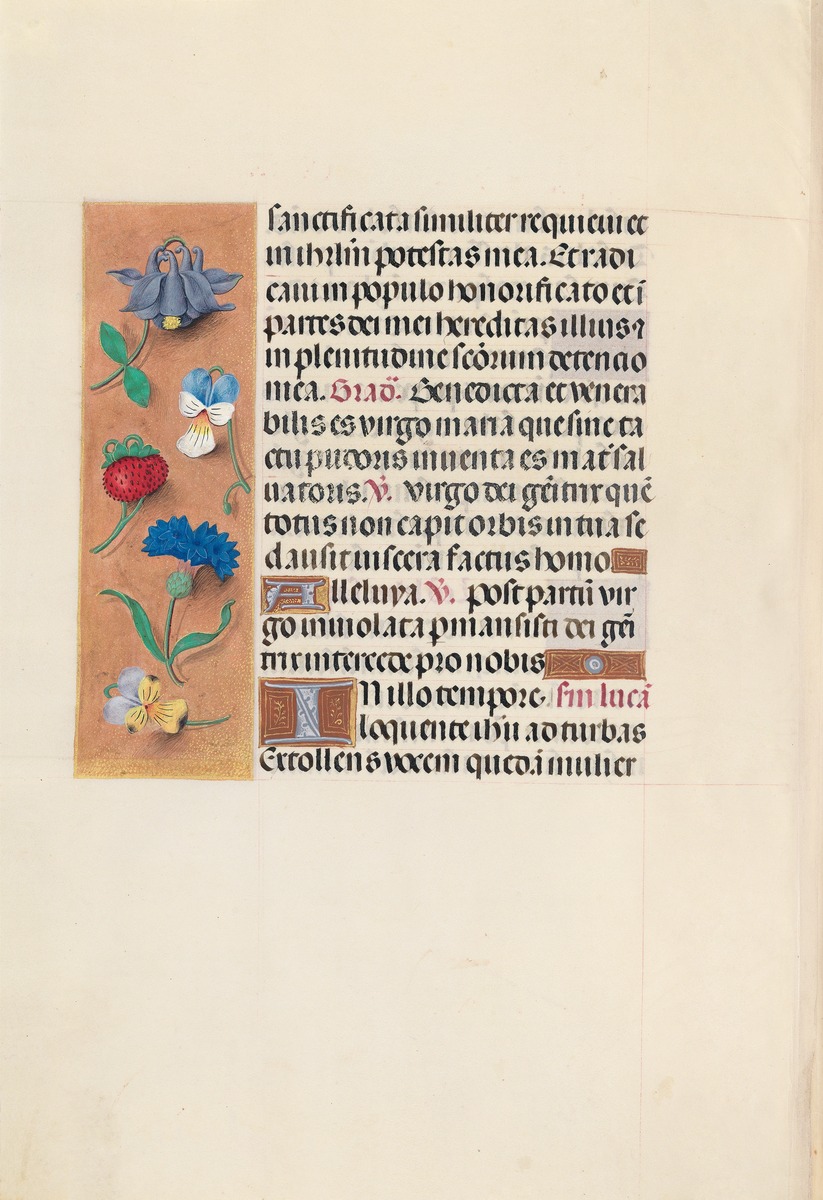 sanctificata similiter requieui et
in ihrl̄m potestas mea. Et radi
caui in populo honorificato et ī
partes dei mei hereditas illius ⁊
in plenitudine sc̄orum detencio
mea. Grad̄. Benedicta et venera
bilis es virgo maria que sine ta
ctu pudoris inuenta es mat̄ sal
uatoris. V̄. Virgo dei gēitrix quē
totus non capit orbis in tua se
clausit uiscera factus homo
Alleluya. V̄. post partū vir
go inuiolata pmansisti dei gēi
trix intercede pro nobis
IN illo tempore. s̄m lucā
loquente ihū ad turbas
Extollens vocem quedā mulier